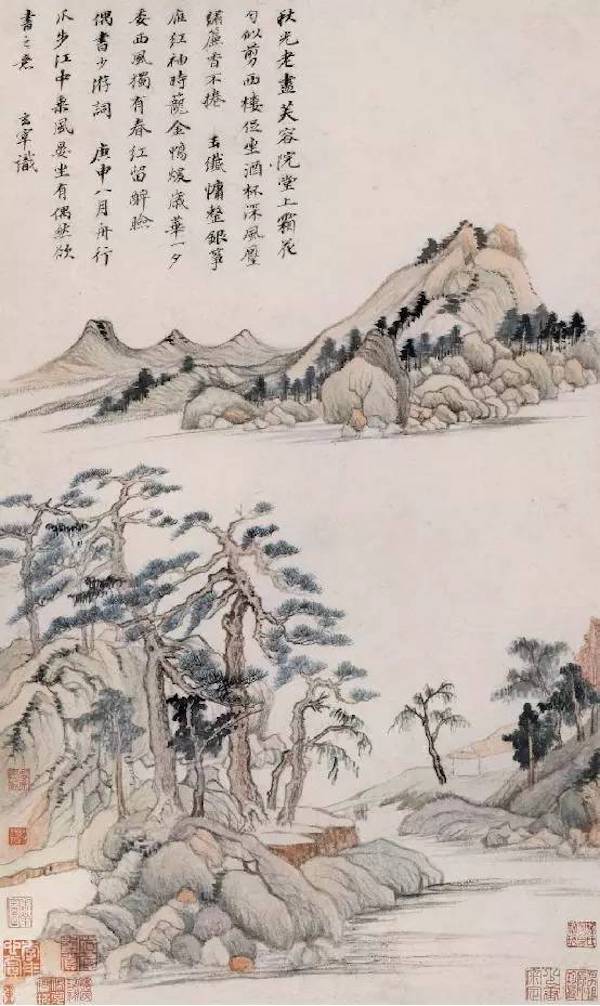 秋光老盡芙容院堂上霜花
勻似剪西樓促坐酒杯深風壓
繡簾香不捲 玉纖慵整銀箏
雁紅袖時籠金鴨煖歲華一夕
委西風獨有春紅留醉臉
偶書少游詞 庚申八月舟行
瓜步江中乘風晏坐有偶然欲
書之意 玄宰識